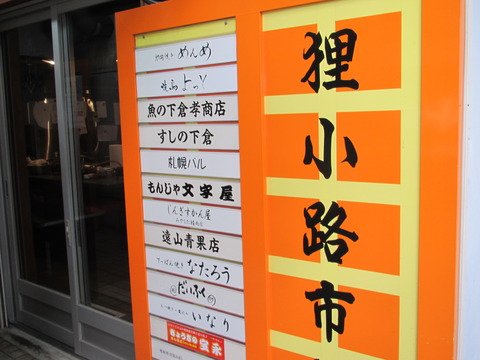 狸小路市
めんめ
よっと
魚の下倉孝商店
すしの下倉
札幌バル
もんじゃ文字屋
じんぎすかん屋
遠山青果店
なたろう
だいふく
いなり
ぎょうざの
宝永